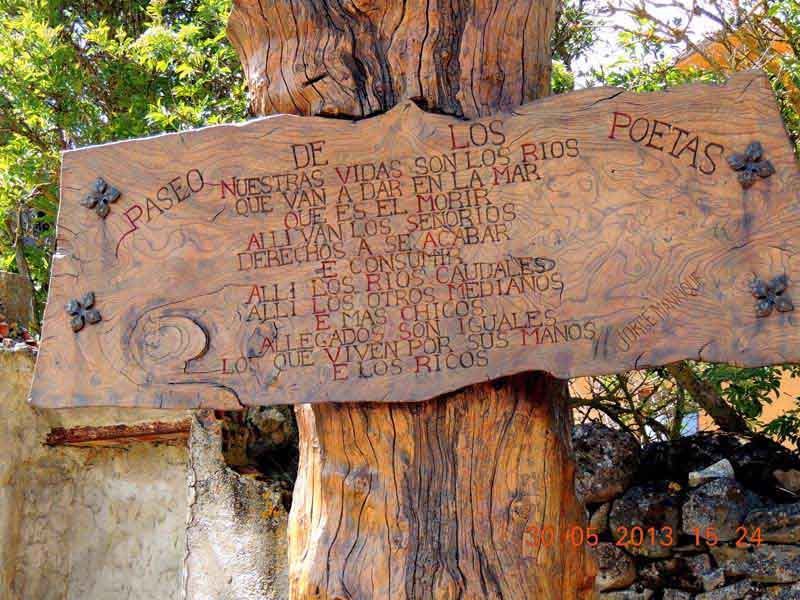 PASEO DE LOS POETAS
NUESTRAS VIDAS SON LOS RIOS
QUE VAN A DAR EN LA MAR
QUE ES EL MORIR
ALLI VAN LOS SEÑORIOS
DERECHOS A SE ACABAR
E CONSUMIR
ALLI LOS RIOS CAUDALES
ALLI LOS OTROS MEDIANOS
E MAS CHICOS
ALLEGADOS SON IGUALES
LOS QUE VIVEN POR SUS MANOS
E LOS RICOS
JORGE MANRIQUE
30/05/2013 15:24